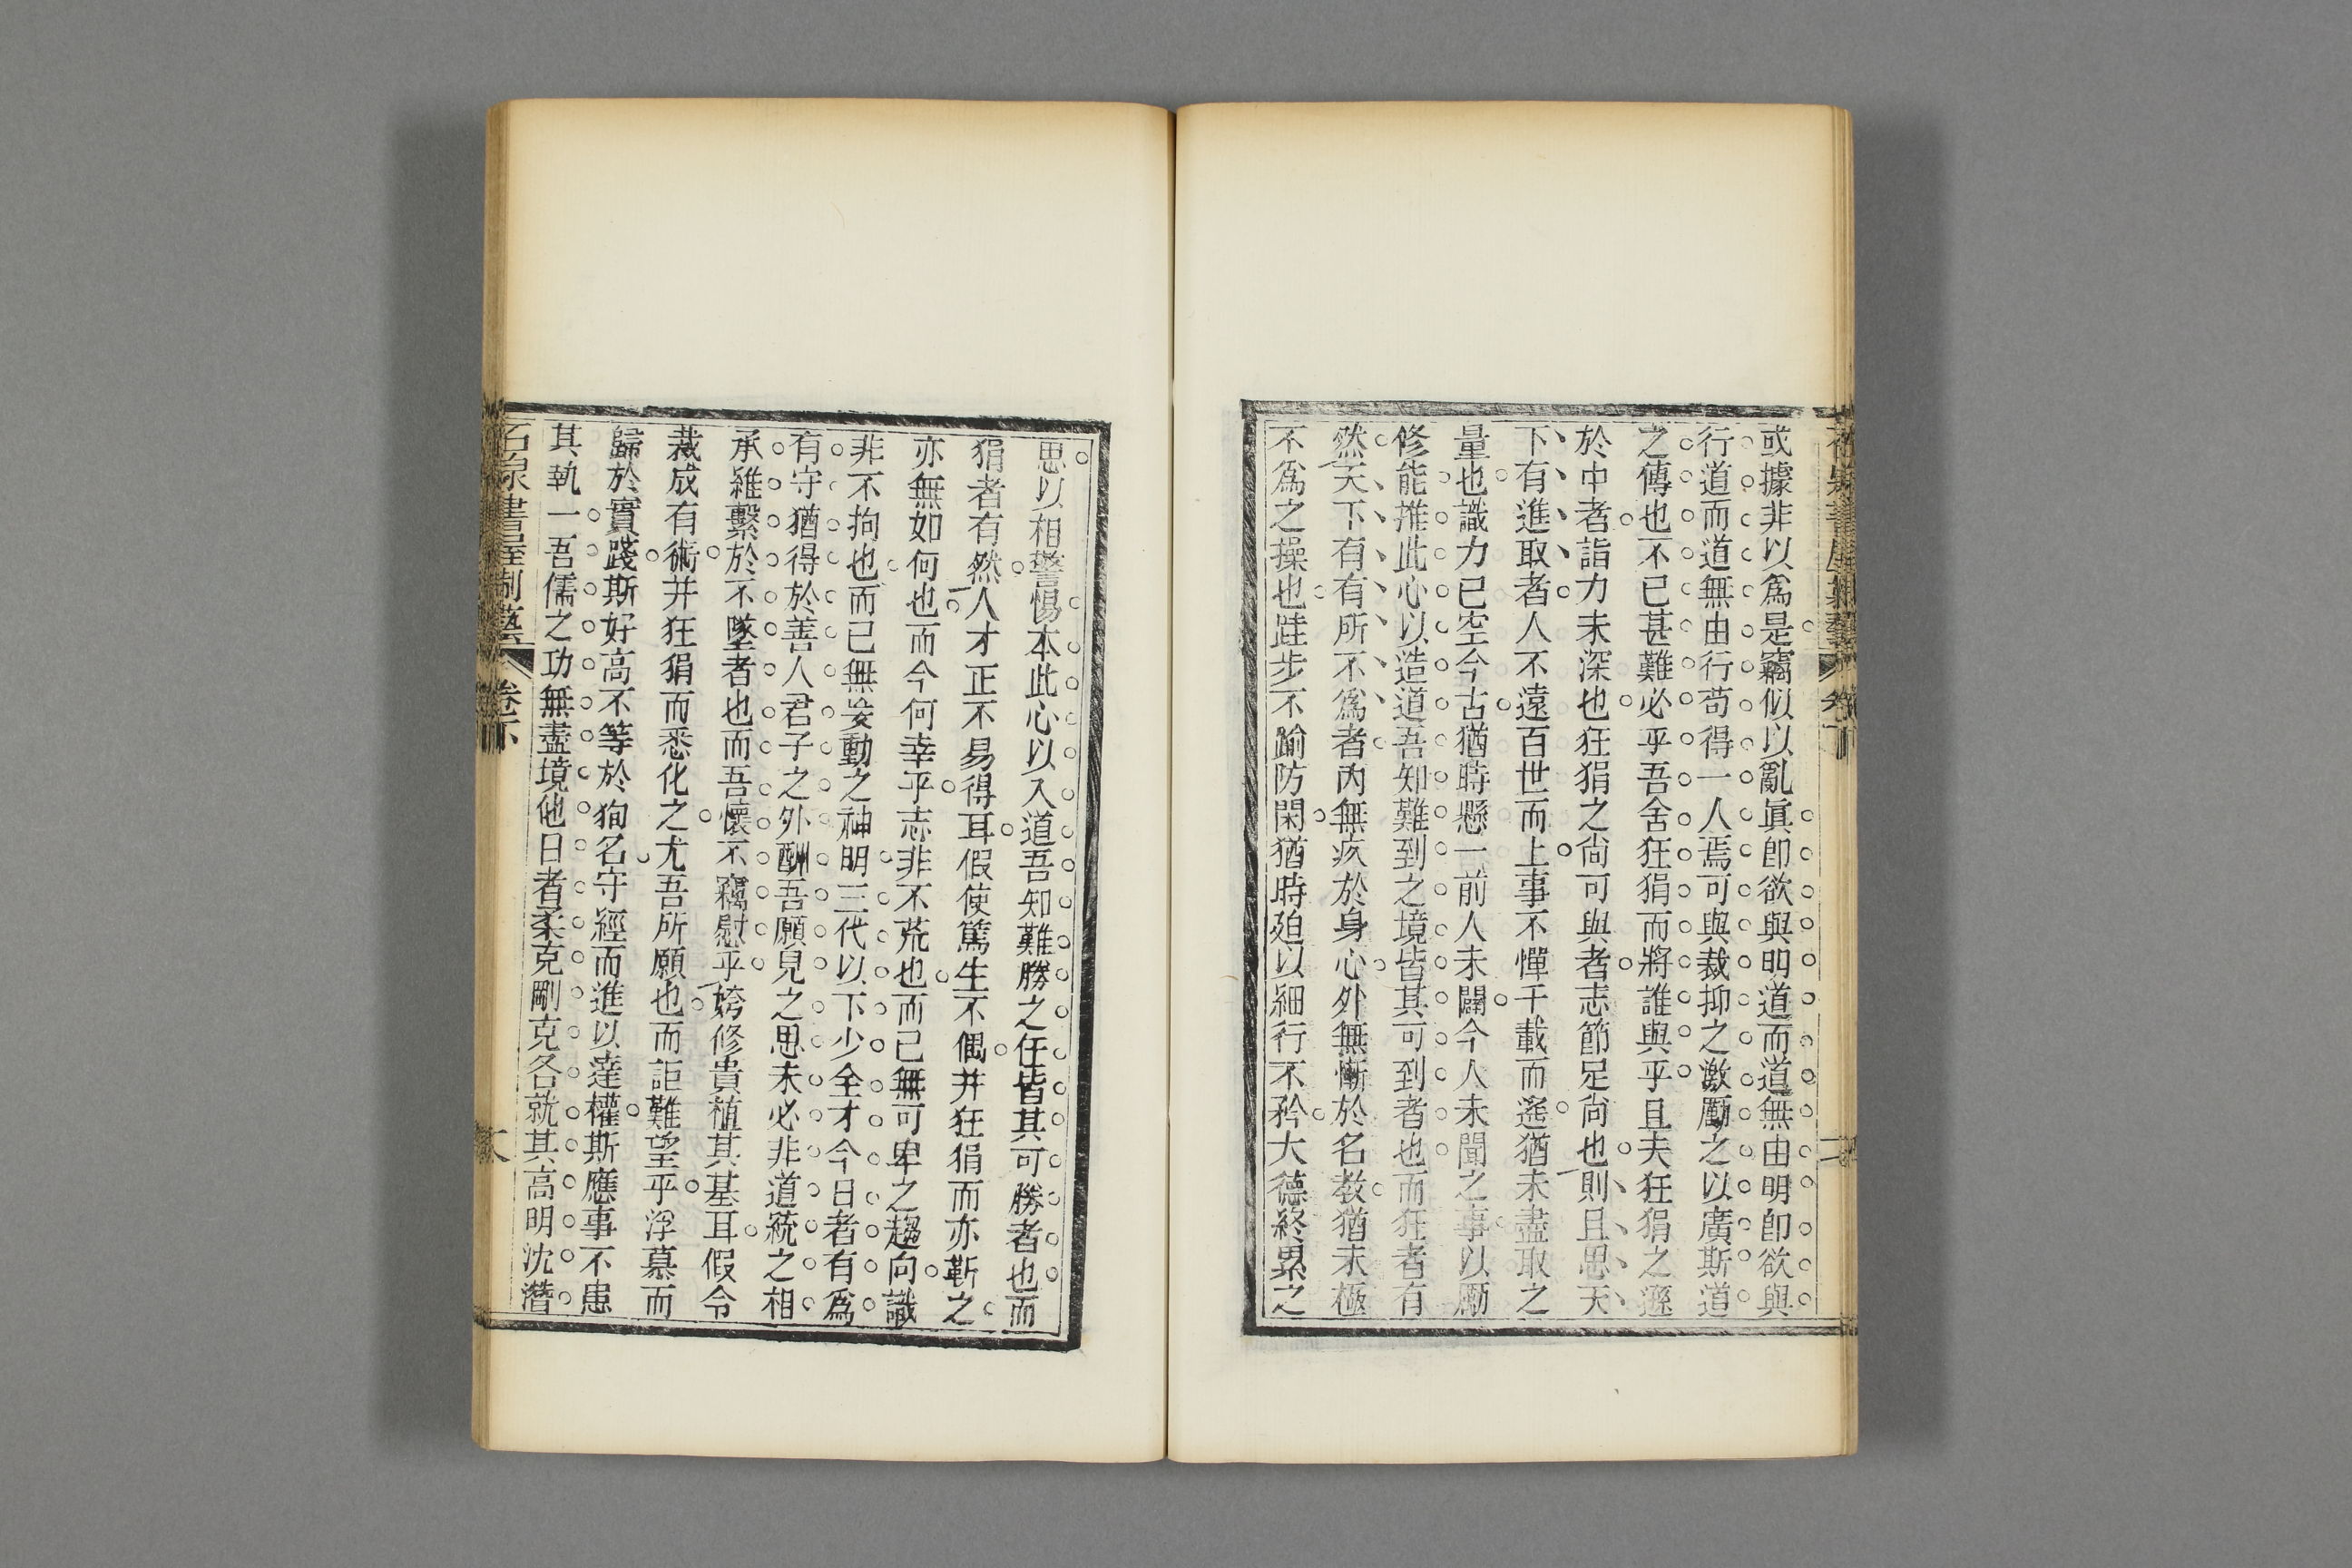 或據非以爲是竊似以亂眞卽欲與明道而道無由明卽欲與
行道而道無由行苟得一人焉可與裁抑之激厲之以廣斯道
之傳也不已甚難必乎吾舍狂狷而將誰與乎且夫狂狷之遜
於中者詣力未深也狂狷之尚可與者志節足尚也則且思天
下有進取者人不遠百世而上事不憚千載而遙猶未盡取之
量也識力已空今古猶時懸一前人未闢今人未聞之事以厲
修能推此心以造道吾知難到之境皆其可到者也而狂者有
然天下有有所不爲者內無疚於身心外無慚於名教猶未極
不爲之操也跬步不踰防閑猶時廹以細行不矜大德終累之
思以相警惕本此心以入道吾知難勝之任皆其可勝者也而
狷者有然人才正不易得耳假使篤生不偶并狂狷而亦靳之
亦無如何也而今何幸乎志非不荒也而已無可卑之趨向識
非不拘也而已無妄動之神明三代以下少全才今日者有爲
有守猶得於善人君子之外酬吾願見之思未必非道統之相
承維繫於不墜者也而吾懷不竊慰乎姱修貴植其基耳假令
裁成有術并狂狷而悉化之尤吾所願也而詎難望乎浮慕而
歸於實踐斯好高不等於狥名守經而進以達權斯應事不患
其執一吾儒之功無盡境他日者柔克剛克各就其高明沈潛
石泉書屋制藝
卷下